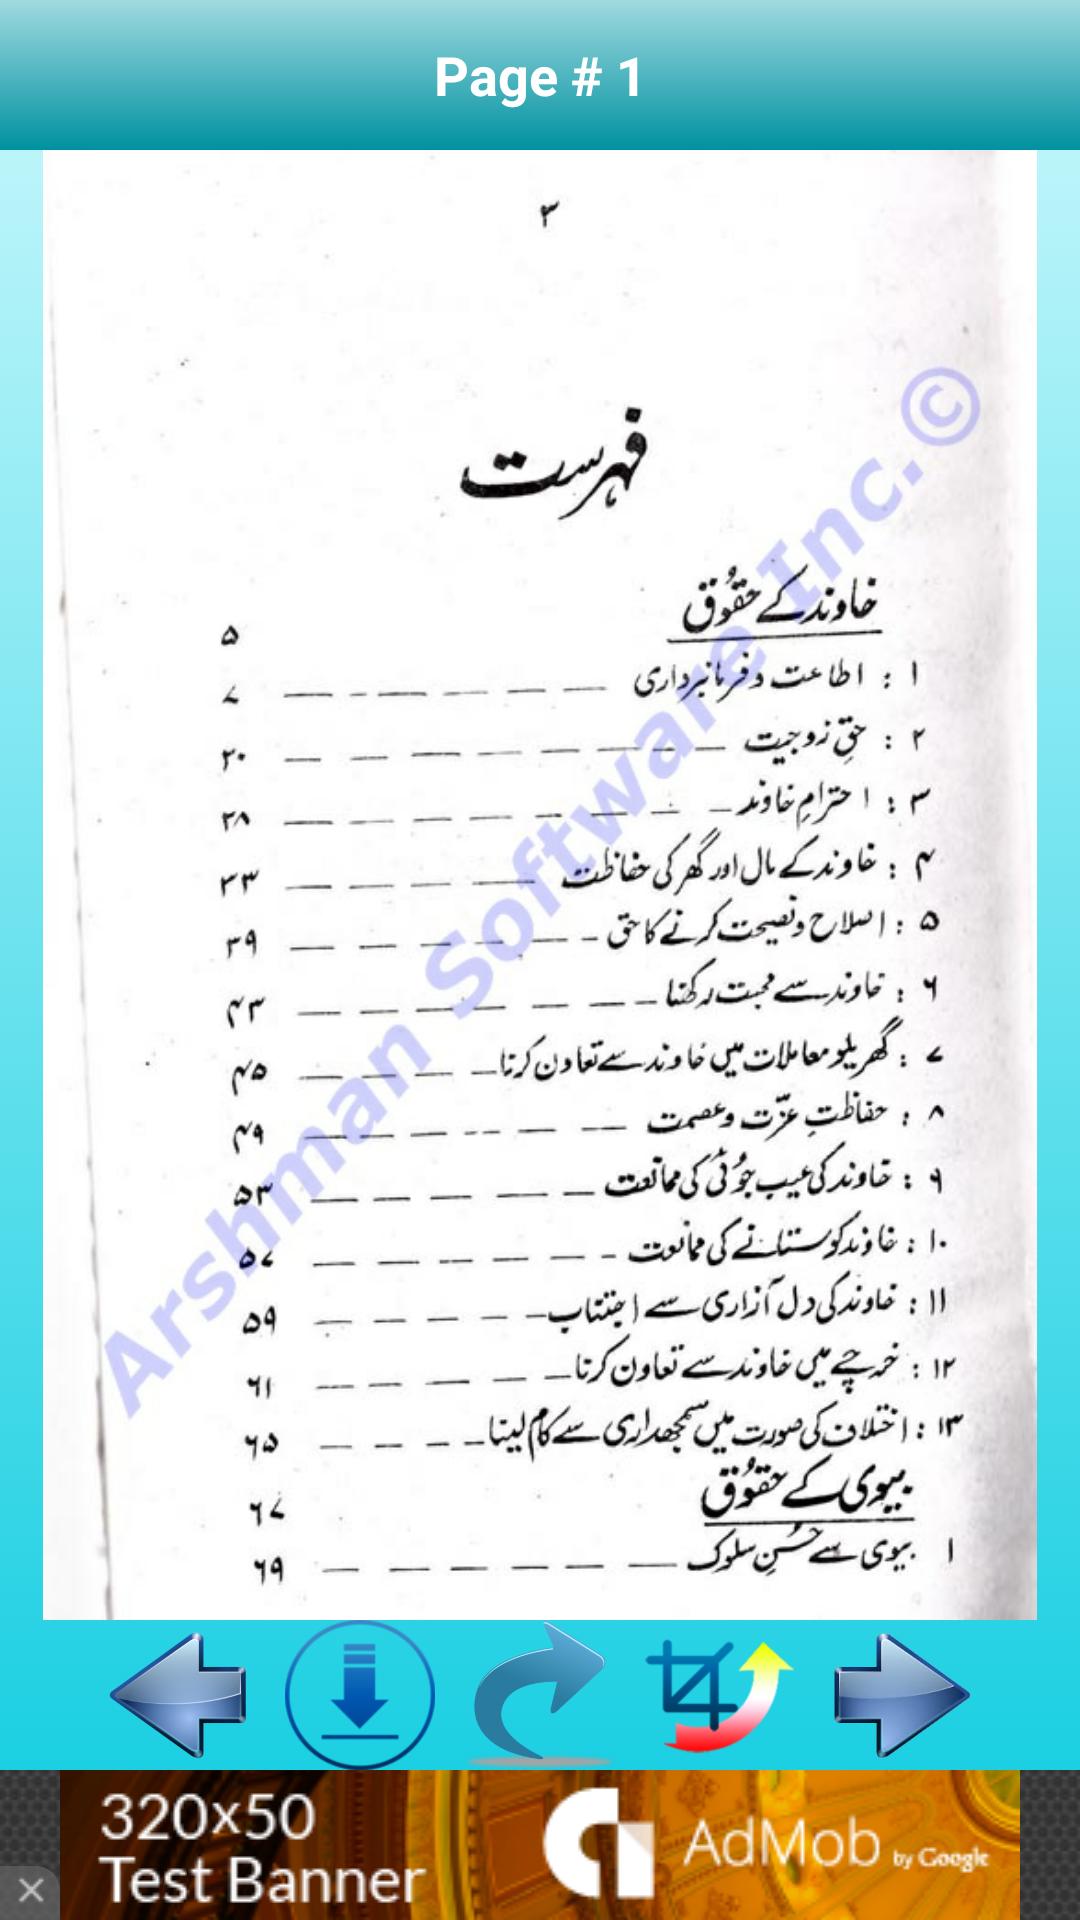 Page # 1
۳
فہرست
خاوند کے حقُوق ۵
۱ : اطاعت و فرمانبرداری ۷
۲ : حقِ زوجیت ۲۰
۳ : احترامِ خاوند ۲۸
۴ : خاوند کے مال اور گھر کی حفاظت ۳۳
۵ : اصلاح و نصیحت کرنے کا حق ۳۹
۶ : خاوند سے محبت رکھنا ۴۳
۷ : گھریلو معاملات میں خاوند سے تعاون کرنا ۴۵
۸ : حفاظتِ عزّت و عصمت ۴۹
۹ : خاوند کی عیب جُوئی کی ممانعت ۵۳
۱۰ : خاوند کو ستانے کی ممانعت ۵۷
۱۱ : خاوند کی دل آزاری سے اجتناب ۵۹
۱۲ : خرچے میں خاوند سے تعاون کرنا ۶۱
۱۳ : اختلاف کی صورت میں سمجھداری سے کام لینا ۶۵
بیوی کے حقُوق ۶۷
۱ بیوی سے حُسنِ سلوک ۶۹
Arshman Software Inc. ©
320x50
Test Banner
AdMob by Google